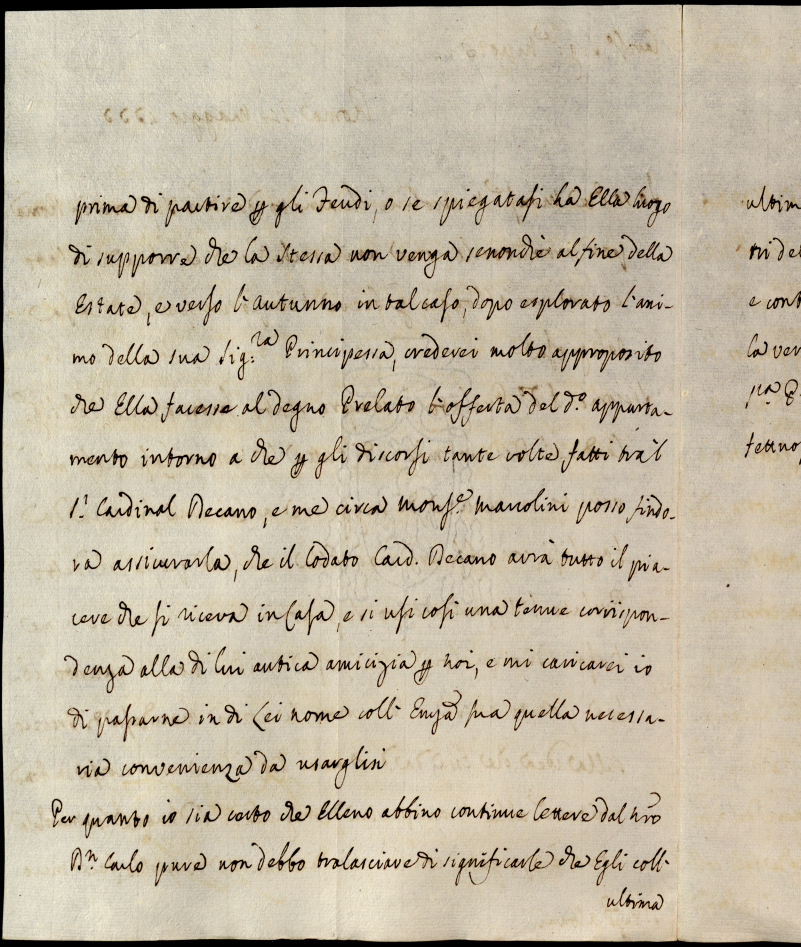 prima di partire ꝑ gli Feudi, o se spiegatasi ha Ella luogo
di supporre che la stessa non venga senonchè al fine della
Estate, e verso l'autunno in tal caso, dopo esplorato l'ani-
mo della sua Sig.ra Principessa, crederei molto approposito
che Ella facesse al degno Prelato l'offerta del d.º apparta-
mento intorno a che ꝑ gli discorsi tante volte fatti trà 'l
S.r Cardinal Decano, e me circa Mons.e Marcolini posso findo-
ra assicurarla, che il Lodato Card. Decano avrà tutto il pia-
cere che si riceva in Casa, e si usi così una tenue corrispon-
denza alla di lui antica amicizia ꝑ noi, e mi caricarei io
di passarne in di Lei nome coll' Emza sua quella necessa-
ria convenienza da usarglisi
Per quanto io sia certo che Elleno abbino continue lettere dal nro
Bn Carlo pure non debbo tralasciare di significarle che Egli coll'
ultima
ultim
tri del
e cont
la ver